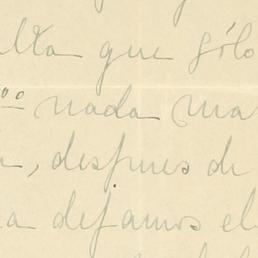 lta que sólo
nada mas
, despues de
a dejamos el